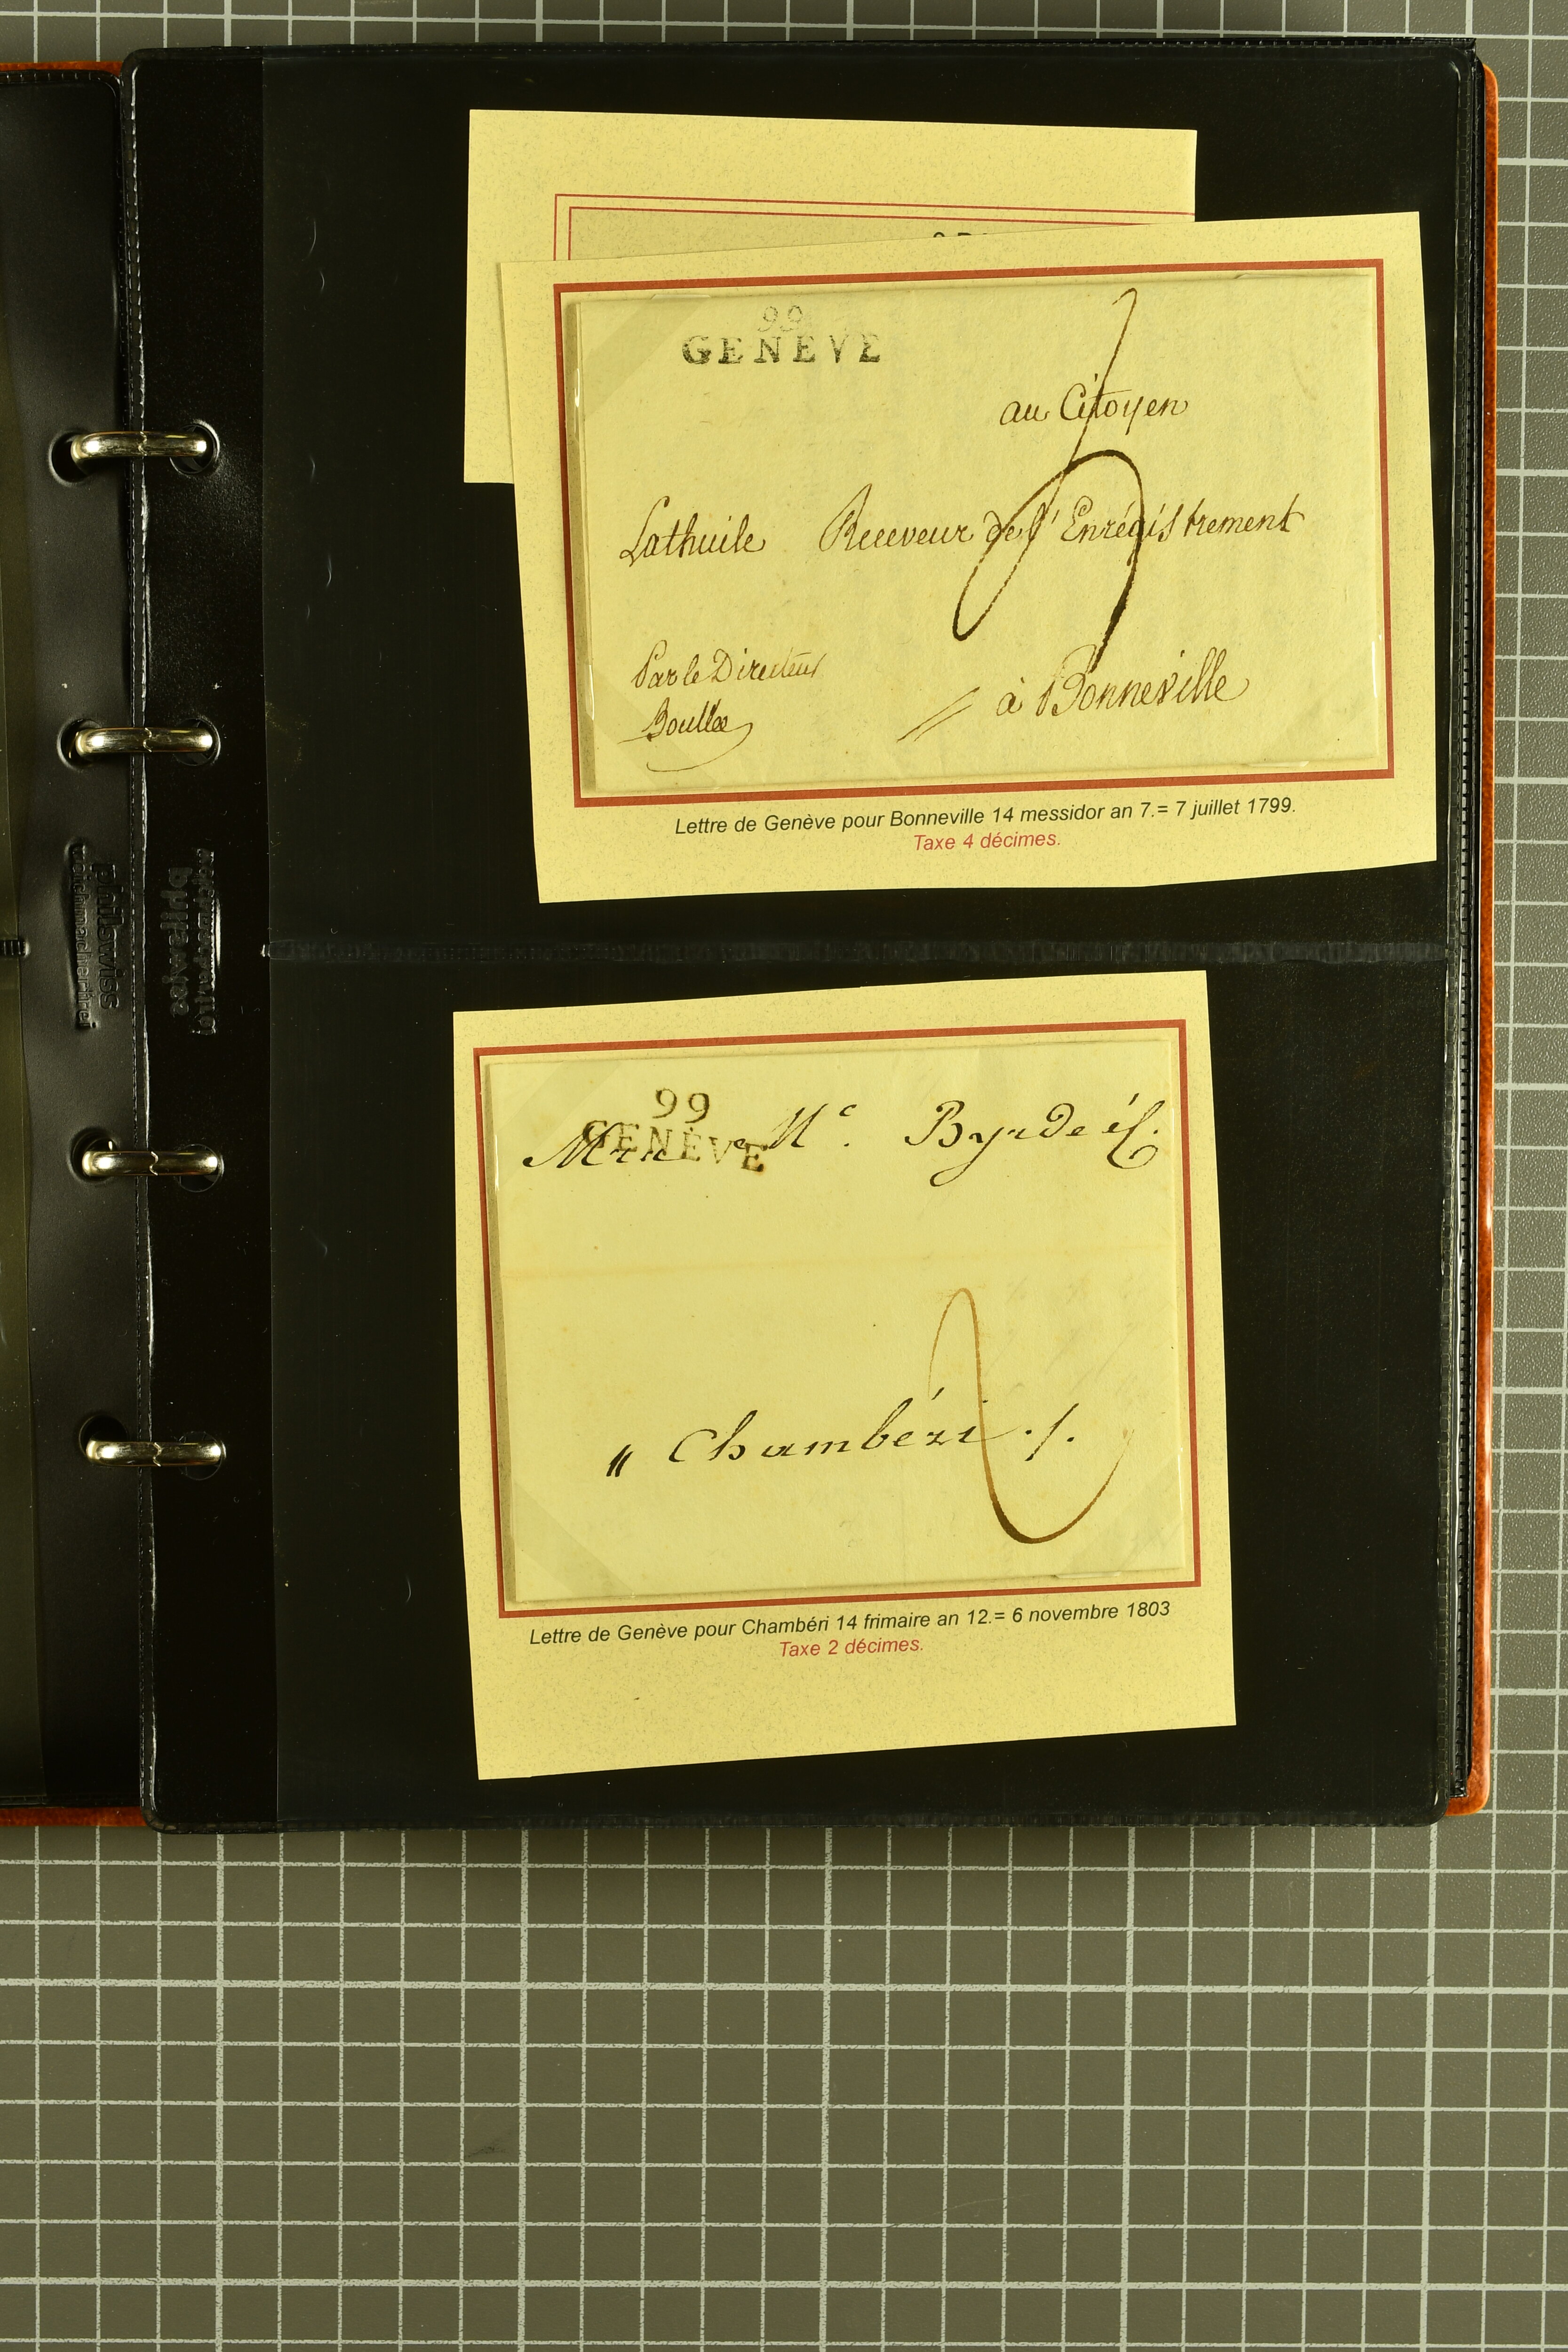 99
GENEVE
au Citoyen
Lathuile Receveur de l'Enrégistrement
Par le Directeur
Boullee
à Bonneville
Lettre de Genève pour Bonneville 14 messidor an 7.= 7 juillet 1799.
Taxe 4 décimes.
99
GENÈVE
2
" Chambéri ./.
Lettre de Genève pour Chambéri 14 frimaire an 12.= 6 novembre 1803
Taxe 2 décimes.
philswiss